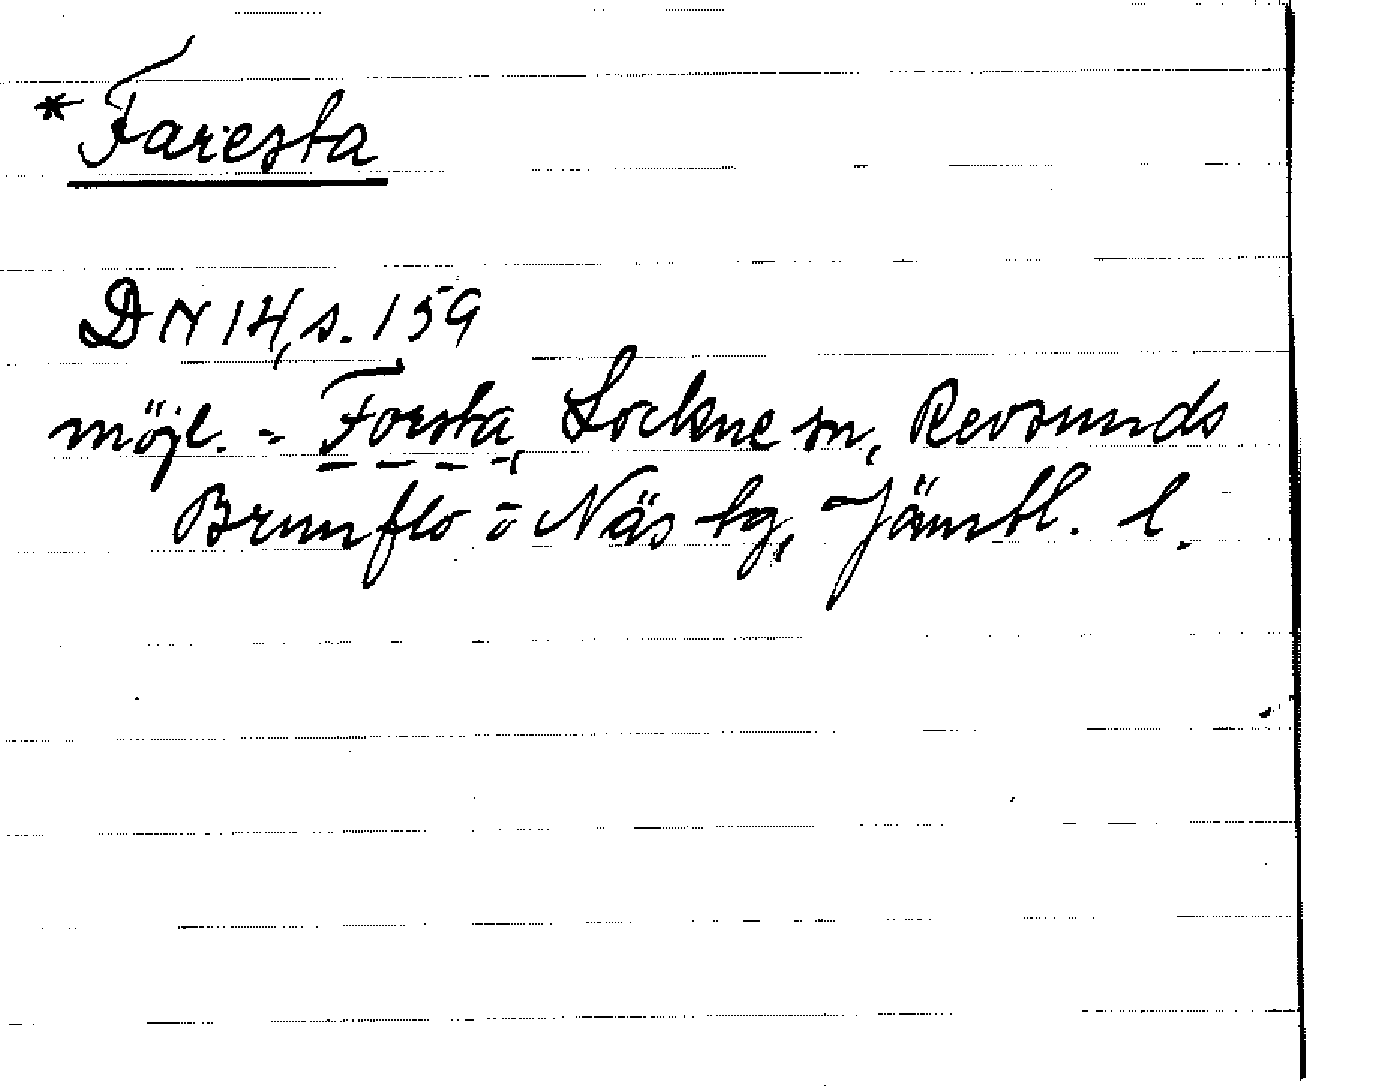 * Faresta
DN 14, s. 159
möjl. = Forsta, Lockne sn, Revsunds
Brunflo o Näs tg, Jämtl. l.